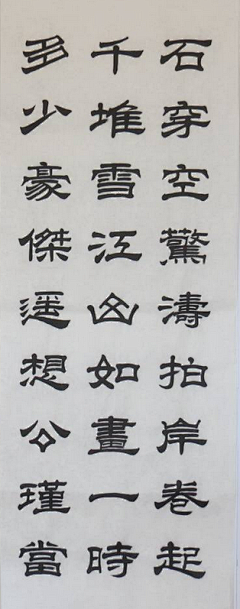 石穿空驚濤拍岸卷起
千堆雪江山如畫一時
多少豪傑遥想公瑾當